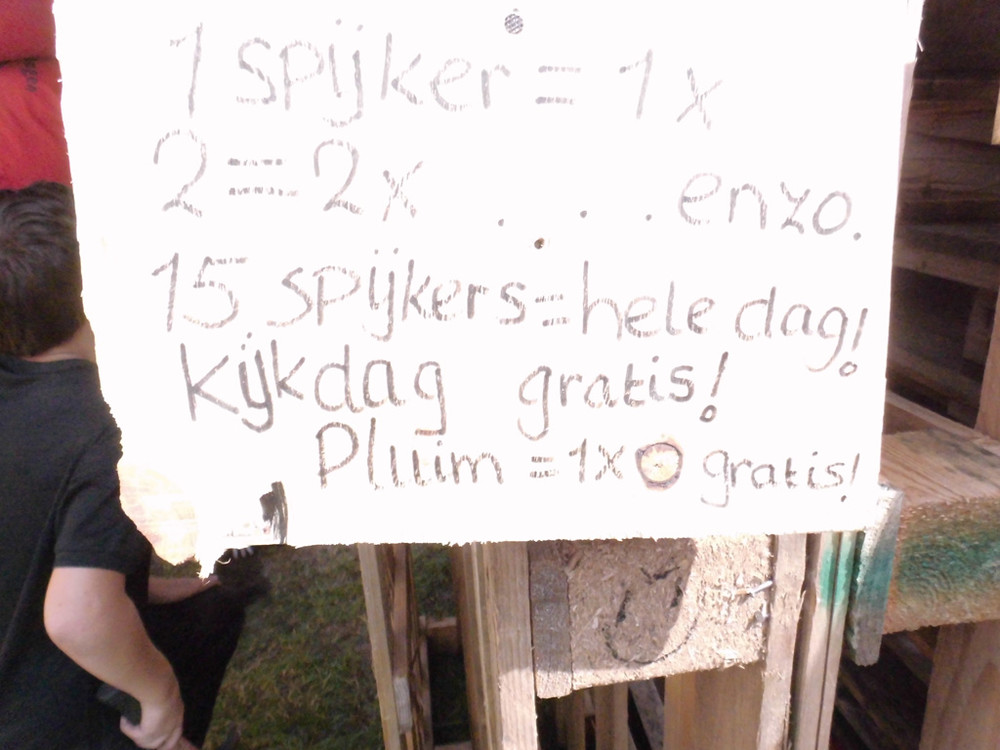 1 spijker = 1x
2 = 2x . . . enzo.
15 spijkers = hele dag!
Kijkdag gratis!
Pluim = 1x gratis!